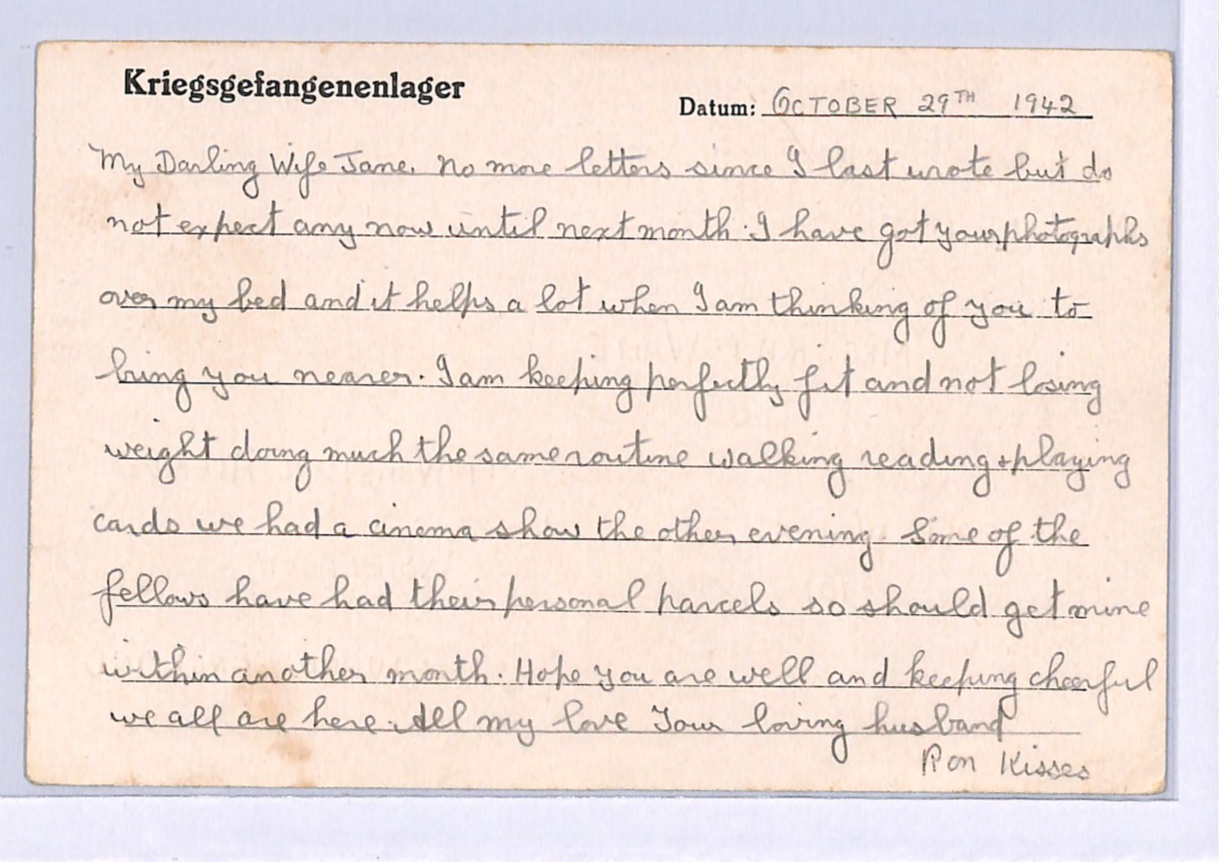 Kriegsgefangenenlager
Datum: OCTOBER 29TH 1942
My Darling Wife Jane. No more letters since I last wrote but do
not expect any now until next month. I have got your photographs
over my bed and it helps a lot when I am thinking of you to
bring you nearer. I am keeping perfectly fit and not losing
weight doing much the same routine walking reading + playing
cards we had a cinema show the other evening. Some of the
fellows have had their personal parcels so should get mine
within another month. Hope you are well and keeping cheerful
we all are here. All my love Your loving husband
Ron Kisses